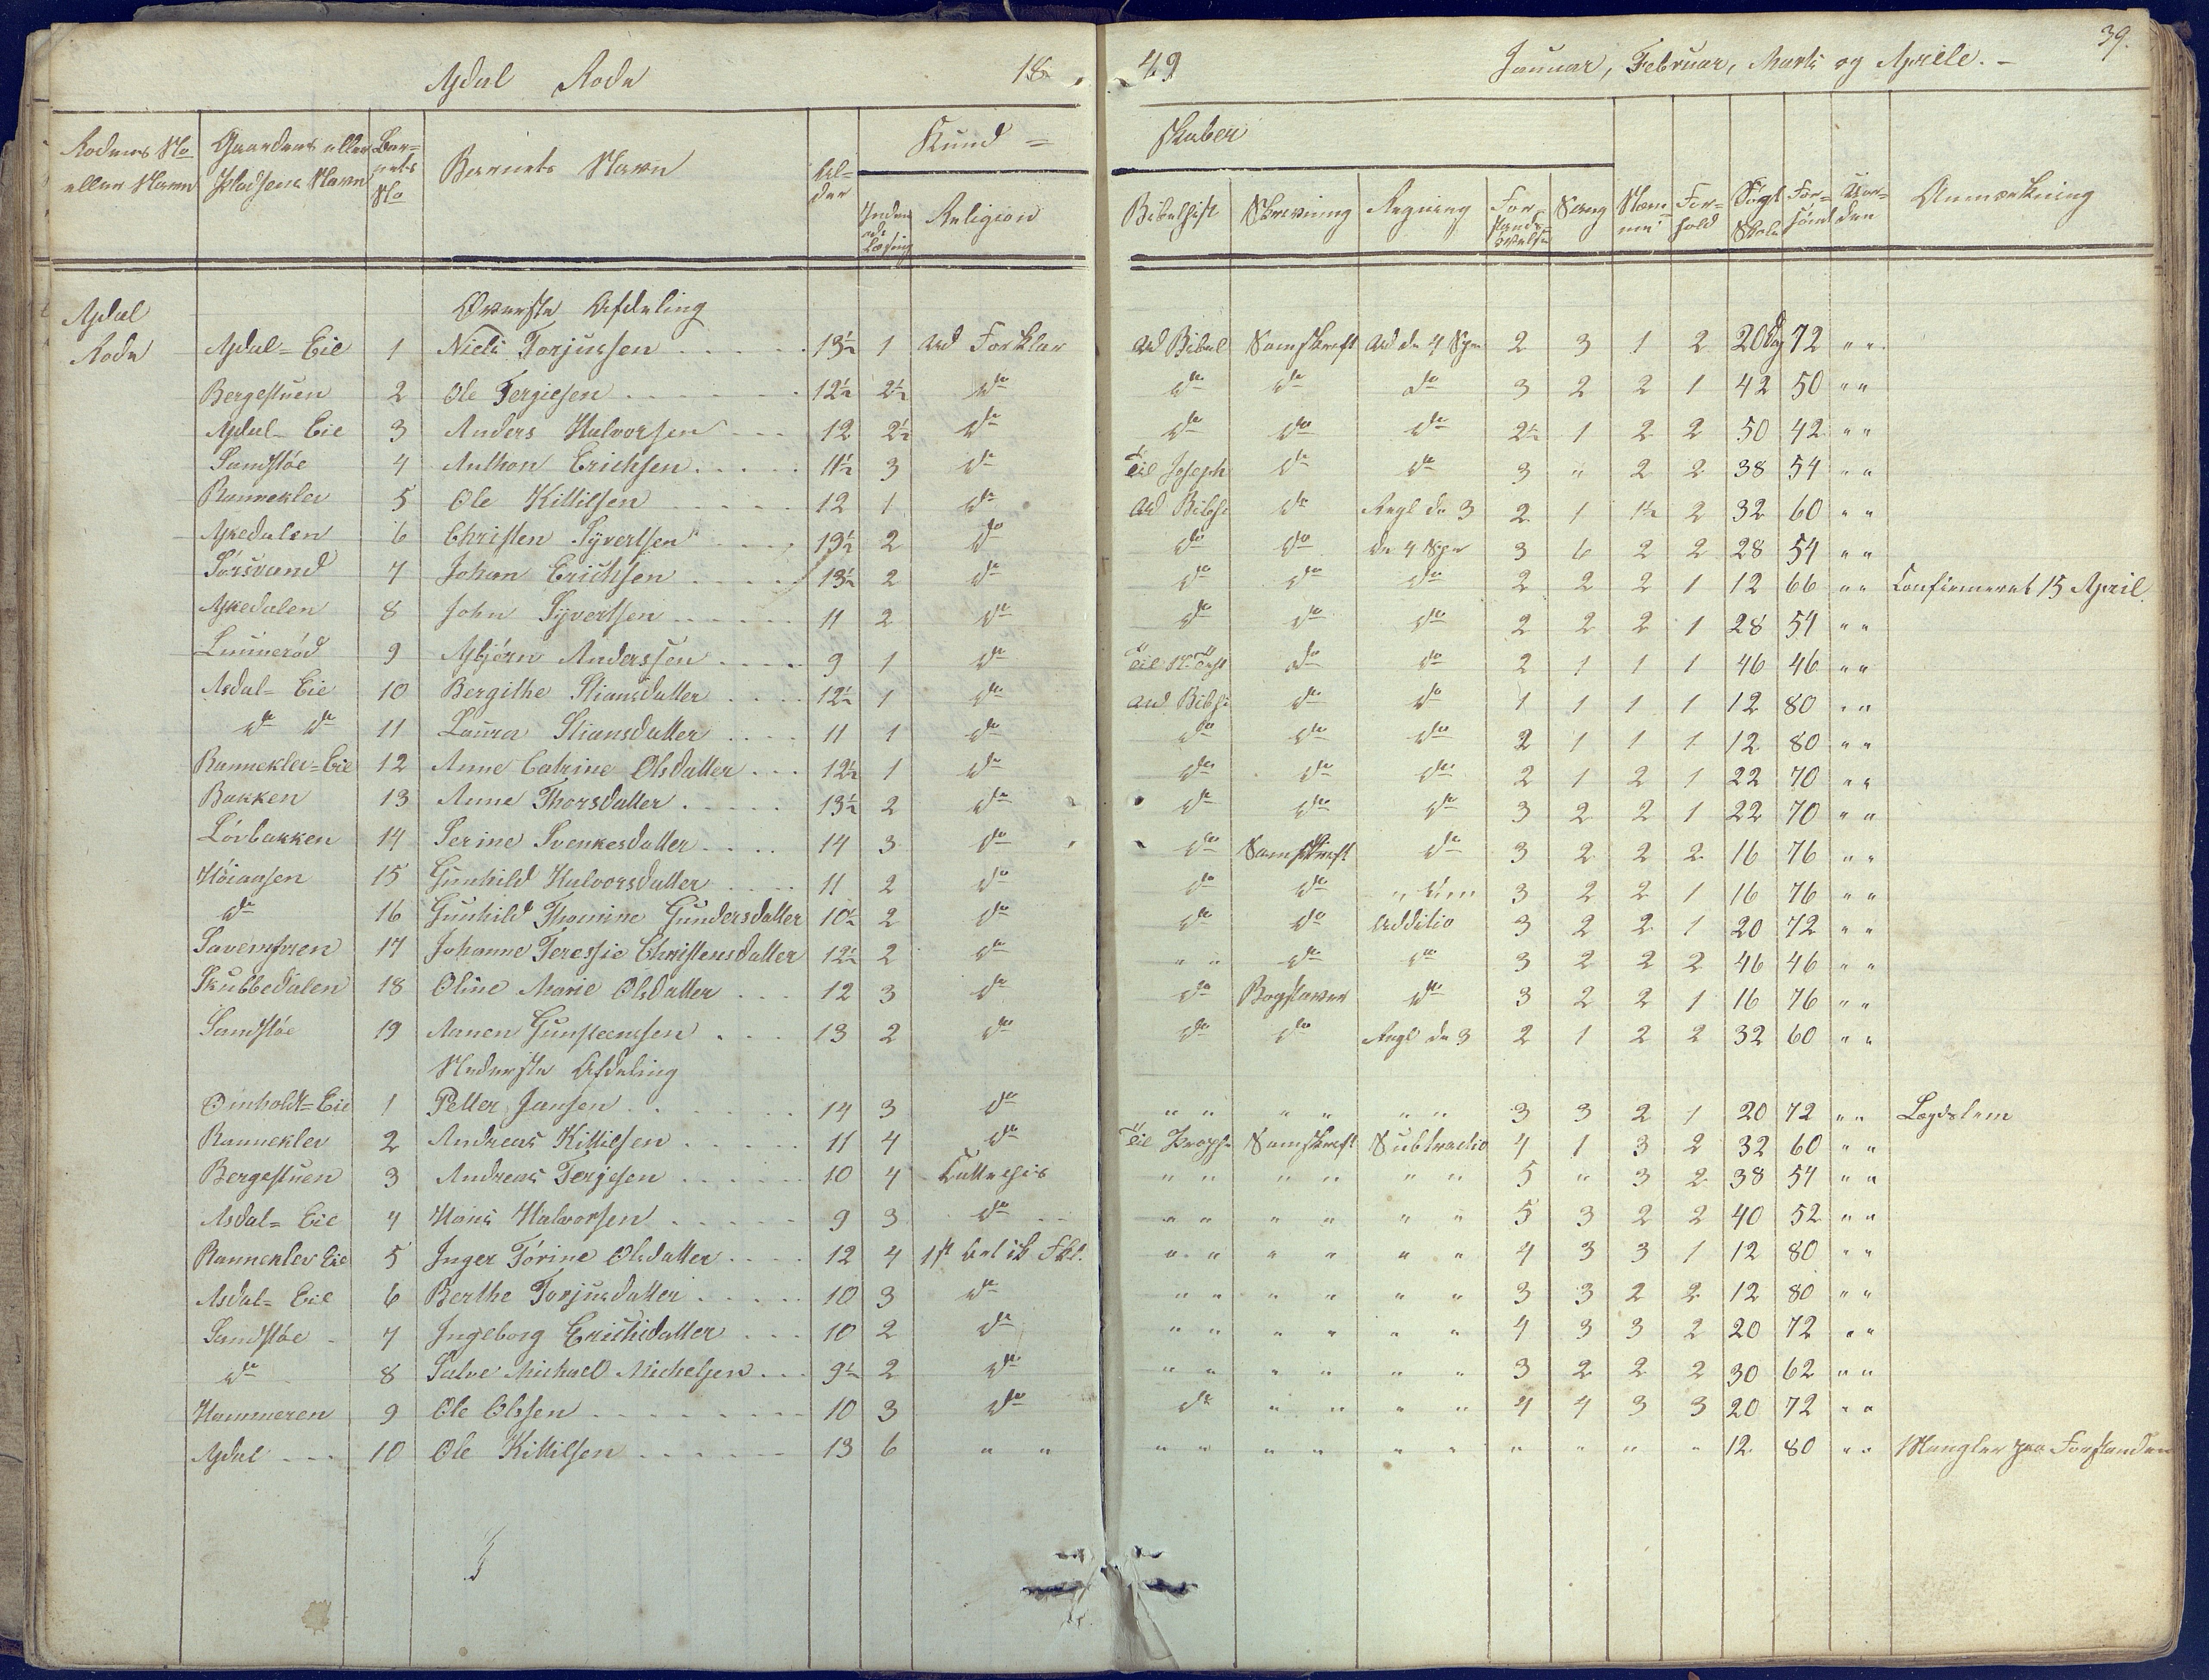 39.
Asdal Rode 1849 Januar, Februar, Marts og Aprile. –
Rodens No eller Navn | Gaardens eller Pladsens Navn | Barnets No | Barnets Navn | Alder | Kundskaber | Inden ad Læsning | Religion | Bibelhist | Skrivning | Regning | Forstandsøvelse | Sang | Nemme | Forhold | Søgt Skole | Forsømt | Orden | Anmærkning
Asdal Rode
Øverste Afdeling
Asdal=Eie 1 Niels Torjussen 13½ 1 ud Forklar ud Bibel Samskrift ud de 4 Spe 2 3 1 2 20 Dg 72 " "
Bergestuen 2 Ole Tergiesen 12½ 2½ do do do do 3 2 2 1 42 50 " "
Asdal=Eie 3 Anders Halvorsen 12 2½ do do do do 2½ 1 2 2 50 42 " "
Sandstøe 4 Anthon Erichsen 11½ 3 do til Joseph do do 3 " 2 2 38 54 " "
Rannekler 5 Ole Kittilsen 12 1 do ud Bibh do Regl de 3 2 1 1½ 2 32 60 " "
Askedalen 6 Christen Syvertsen 13½ 2 do do do de 4 Spe 3 6 2 2 28 54 " "
Sørsvand 7 Johan Erichsen 13½ 2 do do do do 2 2 2 1 12 66 " " Confirmeret 15 April
Askedalen 8 John Syvertsen 11 2 do do do do 2 2 2 1 28 54 " "
Lunnerød 9 Asbjørn Anderssen 9 1 do do do 2 1 1 1 46 46 " "
Asdal=Eie 10 Bergithe Stiansdatter 12½ 1 do ud Bibh do do 1 1 1 1 12 80 " "
do do 11 Laura Stiansdatter 11 1 do do do do 2 1 1 1 12 80 " "
Rannekler=Eie 12 Anne Catrine Olsdatter 12½ 1 do do do do 2 1 2 1 22 70 " "
Bakken 13 Anne Thorsdatter 13½ 2 do do do do 3 2 2 1 22 70 " "
Lövbakken 14 Serine Svenkesdatter 14 3 do do Samskrift do 3 2 2 2 16 76 " "
Höiaasen 15 Gunhild Halvorsdatter 11 2 do do do 3 2 2 1 16 76 " "
do 16 Gunhild Thomine Gundersdatter 10½ 2 do do do Additio 3 2 2 1 20 72 " "
17 Johanne Teressie Christensdatter 12½ 2 do " " do do 3 2 2 2 46 46 " "
Skubbedalen 18 Oline Marie Olsdatter 12 3 do do Bogstaver do 3 2 2 1 16 76 " "
Sandstøe 19 Aanen Gunsteenssen 13 2 do do do Regl de 3 2 1 2 2 32 60 " "
Nederste Afdeling
Omholdt=Eie 1 Petter Jansen 14 3 do " " " " " " 3 3 2 1 20 72 " " Lægdslem
Rannekler 2 Andreas Kittilsen 11 4 do til Samskrift Subtractio 4 1 3 2 32 60 " "
Bergestuen 3 Andreas Terjesen 10 4 Cattechis " " " " " " 5 " 3 2 38 54 " "
Asdal=Eie 4 Hans Halvorsen 9 3 do " " " " " " 5 3 2 2 40 52 " "
Rannekler Eie 5 Inger Tørine Olsdatter 12 4 " " " " " " 4 3 3 1 12 80 " "
Asdal=Eie 6 Berthe Torjusdatter 10 3 do " " " " " " 3 3 2 2 12 80 " "
Sandstøe 7 Ingeborg Erichsdatter 10 2 do " " " " " " 4 3 3 2 20 72 " "
do 8 Salve Michael Michelsen 9½ 2 do " " " " " " 3 2 2 2 30 62 " "
Hammeren 9 Ole Olssen 10 3 do do " " " " 4 4 3 3 20 72 " "
Asdal 10 Ole Kittilsen 13 6 " " " " " " " " " " " " 12 80 " " Mangler paa Forstanden